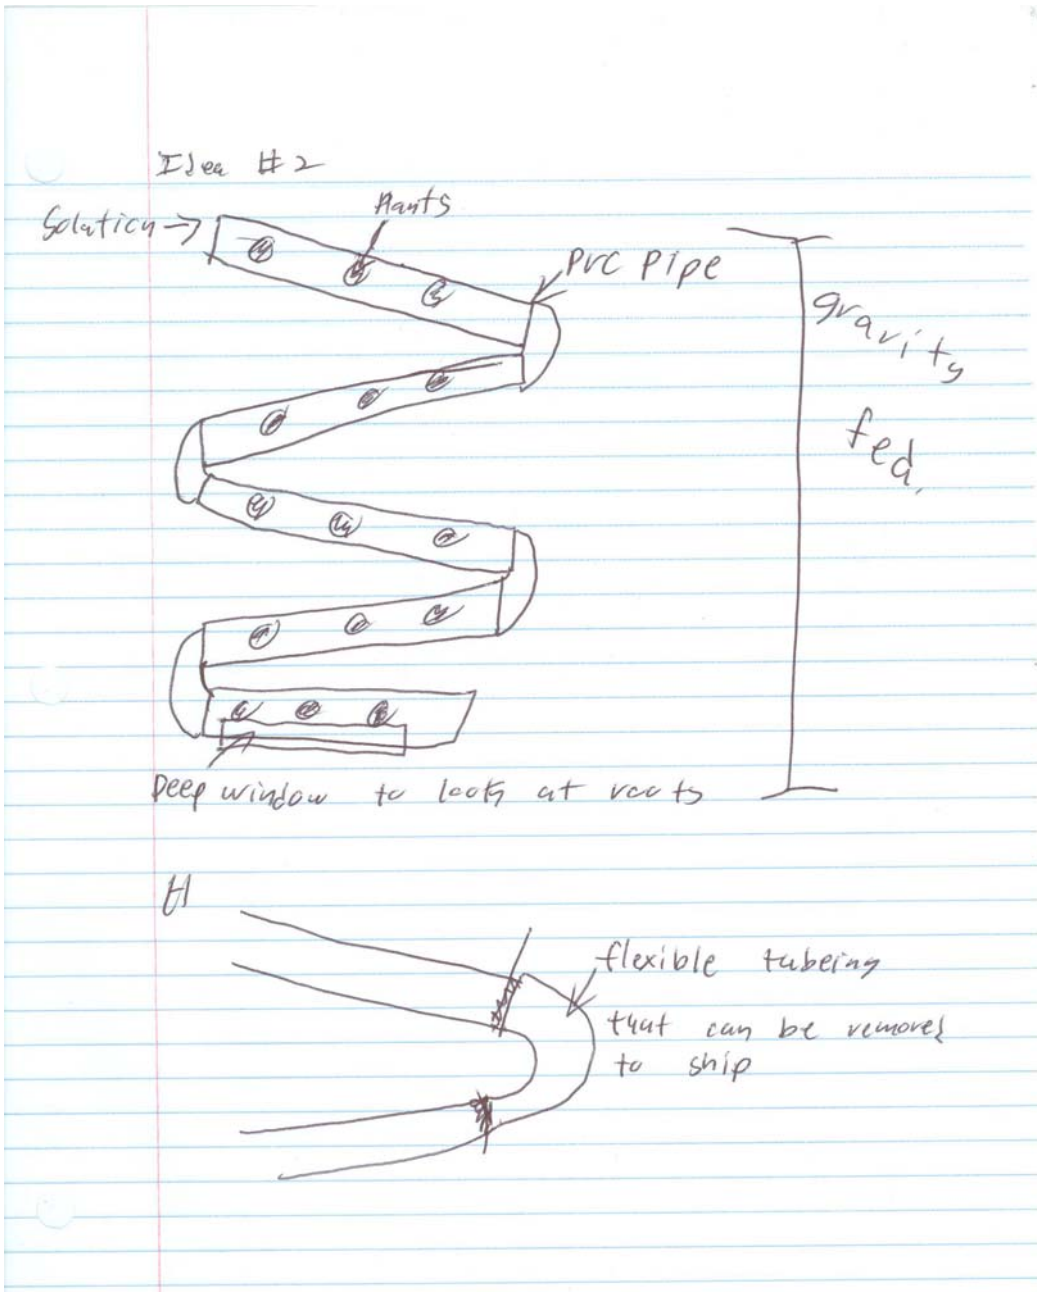 Idea #2
Solution →
Plants
PVC Pipe
gravity
fed.
Deep window to look at roots
flexible tubeing
that can be removed
to ship